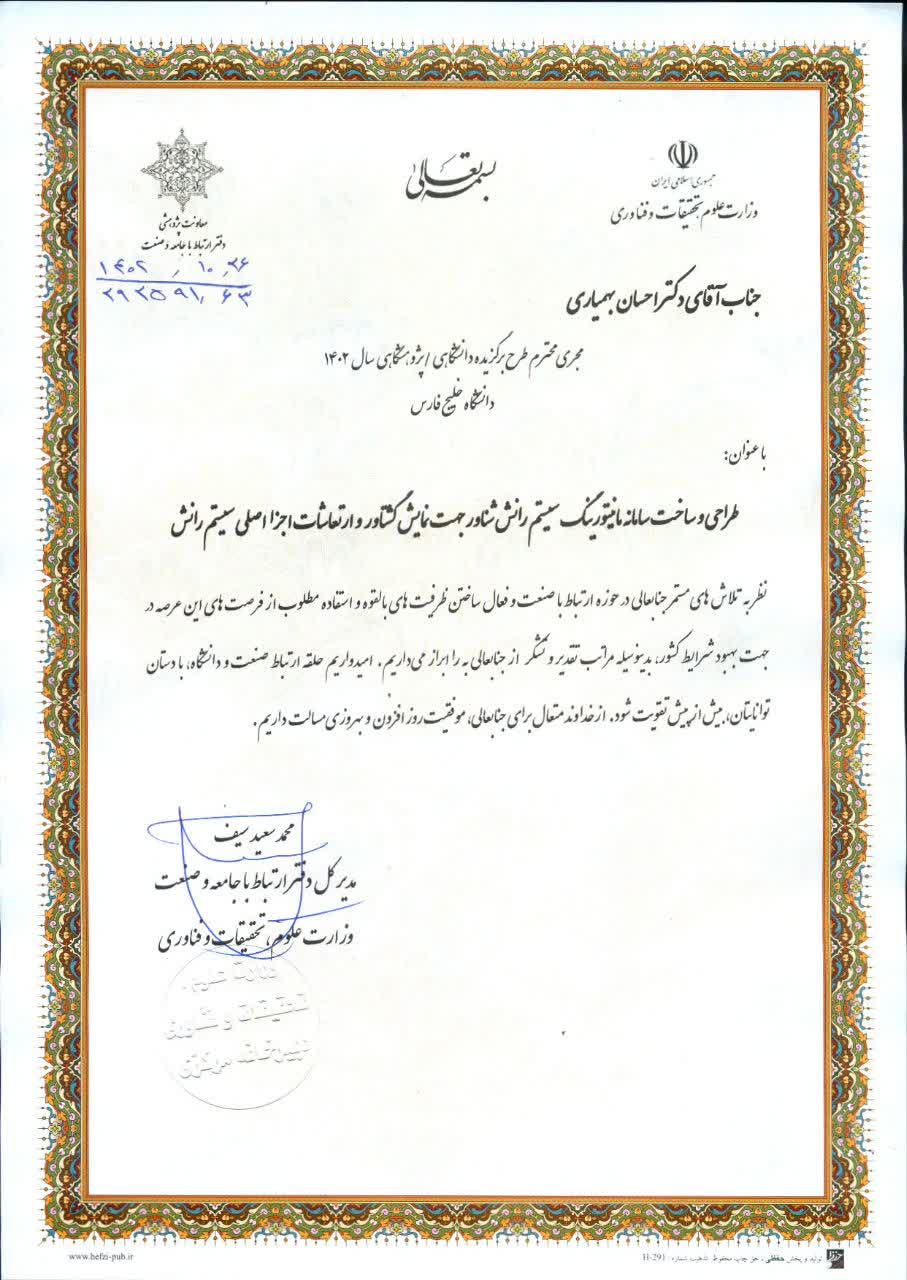 جمهوری اسلامی ایران
وزارت علوم تحقیقات و فناوری
بسمه تعالی
معاونت پژوهشی
دفتر ارتباط با جامعه و صنعت
۱۴۰۲ ، ۱۰ ، ۲۶
۲۹۲۵۹۱ ، ۶۳
جناب آقای دکتر احسان بهمیاری
مجری محترم طرح برگزیده دانشگاهی / پژوهشگاهی سال ۱۴۰۲
دانشگاه خلیج فارس
با عنوان:
طراحی و ساخت سامانه مانیتورینگ سیستم رانش شناور جهت نمایش گشتاور و ارتعاشات اجزا اصلی سیستم رانش
نظر به تلاش های مستمر جنابعالی در حوزه ارتباط با صنعت و فعال ساختن ظرفیت های بالقوه و استفاده مطلوب از فرصت های این عرصه در
جهت بهبود شرایط کشور، بدینوسیله مراتب تقدیر و تشکر از جنابعالی به را ابراز می‌داریم. امیدواریم حلقه ارتباط صنعت و دانشگاه، با دستان
توانایتان، بیش از پیش تقویت شود. از خداوند متعال برای جنابعالی، موفقیت روز افزون و بهروزی مسالت داریم.
محمد سعید سیف
مدیر کل دفتر ارتباط با جامعه و صنعت
وزارت علوم، تحقیقات و فناوری
وزارت علوم،
تحقیقات و فناوری
دبیرخانه مرکزی
www.hefzi-pub.ir
تولید و پخش حفظی، حق چاپ محفوظ، تذهیب شماره: H-291